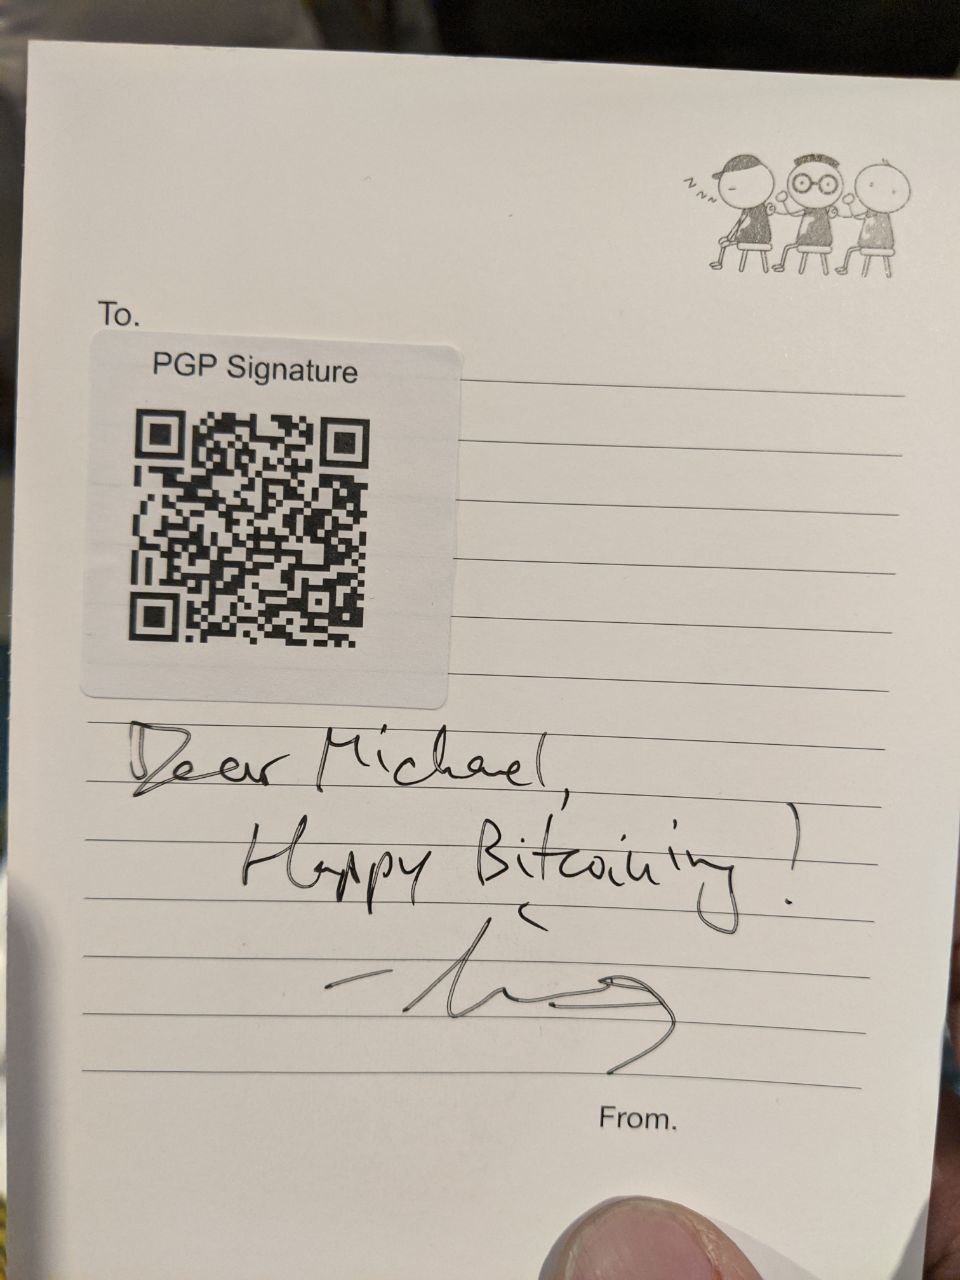 To.
PGP Signature
Dear Michael,
Happy Bitcoining!
From.